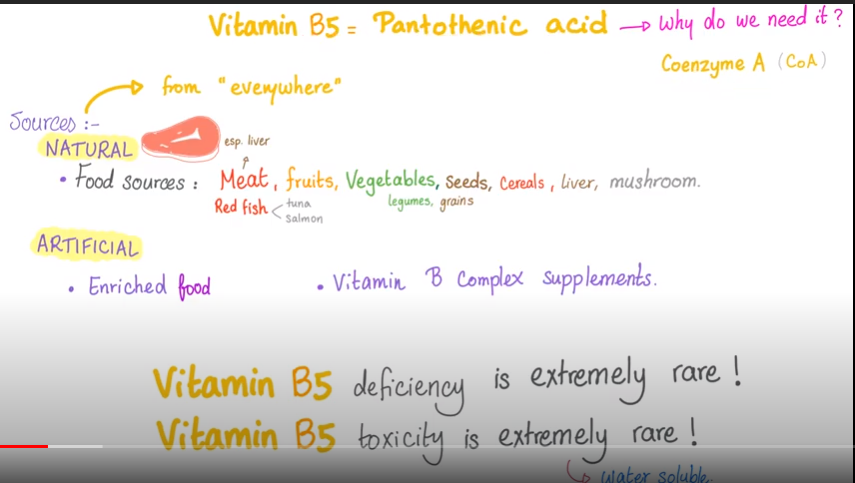 Vitamin B5 = Pantothenic acid → Why do we need it?
Coenzyme A (CoA)
from "everywhere"
Sources :-
NATURAL
esp. liver
• Food sources : Meat, fruits, Vegetables, seeds, cereals, liver, mushroom.
Red fish < tuna
salmon
legumes, grains
ARTIFICIAL
• Enriched food • Vitamin B Complex supplements.
Vitamin B5 deficiency is extremely rare!
Vitamin B5 toxicity is extremely rare!
water soluble.